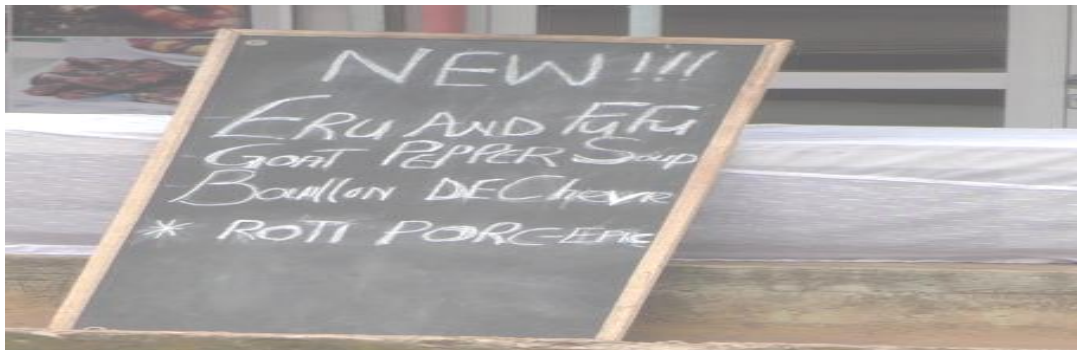 NEW!!!
ERU AND FUFU
GOAT PEPPER SOUP
BOUILLON DE CHEVRE
* ROTI PORC-EPIC